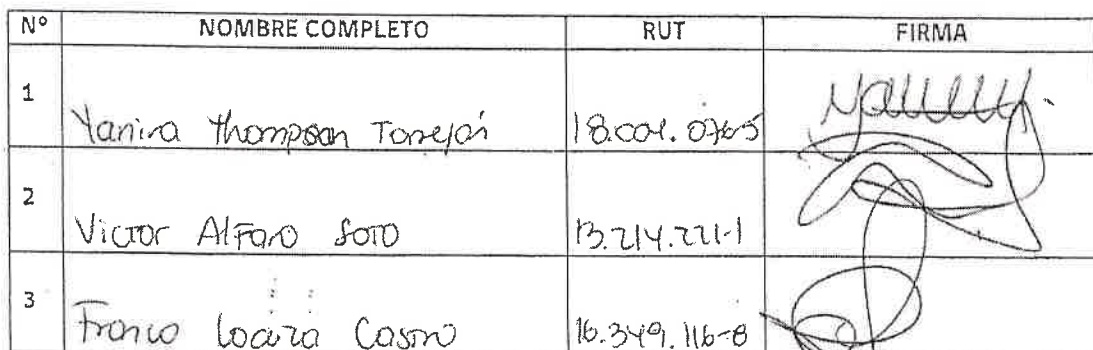 N° NOMBRE COMPLETO RUT FIRMA
1 Yanira Thompson Torrejón
2 Victor Alfaro Soto 13.214.221-1
3 Franco Castro 16.349.116-8